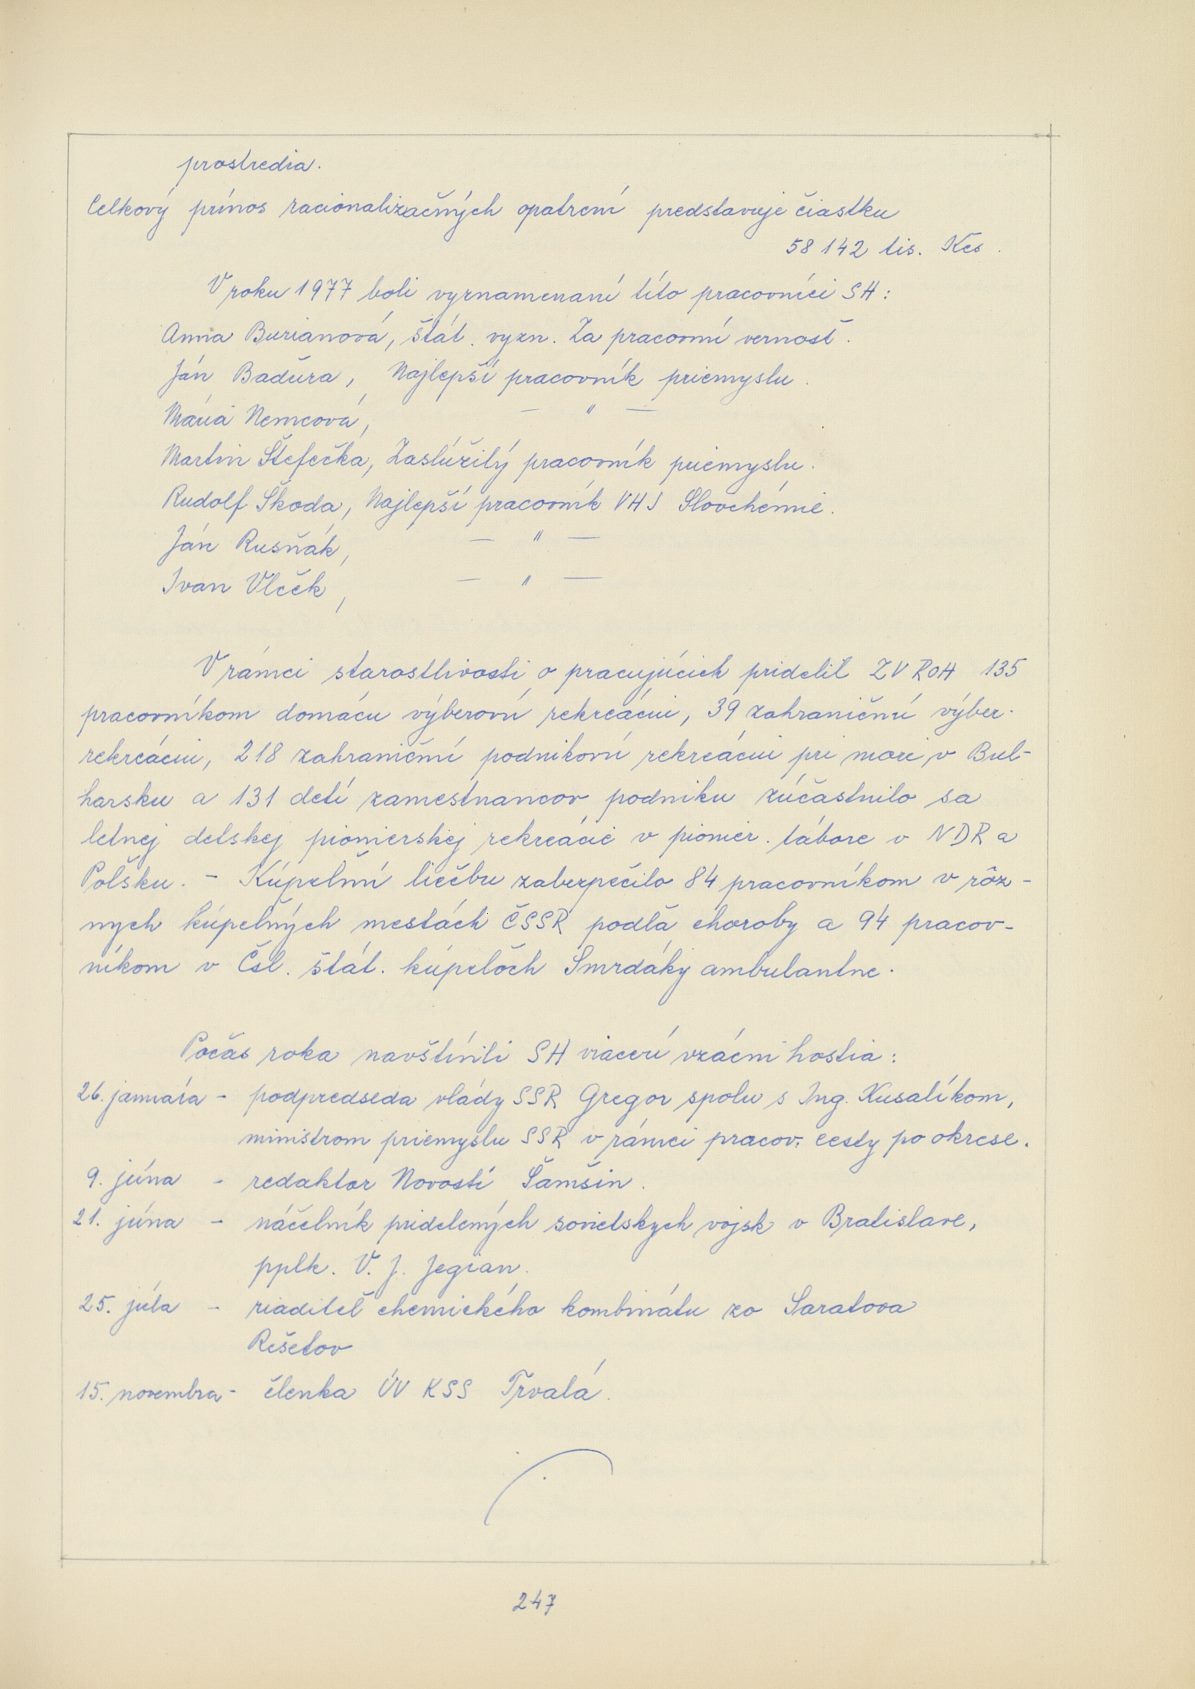 prostredia.
Celkový prínos racionalizačných opatrení predstavuje čiastku
58 142 tis. Kčs.
V roku 1977 boli vyznamenaní títo pracovníci SH:
Anna Burianová, štát. vyzn. Za pracovnú vernosť.
Ján Baďura, Najlepší pracovník priemyslu.
Mária Nemcová, — " —
Martin Štefečka, Zaslúžilý pracovník priemyslu.
Rudolf Škoda, Najlepší pracovník VHJ Slovchémie.
Ján Rusňák, — " —
Ivan Vlček, — " —
V rámci starostlivosti o pracujúcich pridelil ZV ROH 135
pracovníkom domácu výberovú rekreáciu, 39 zahraničnú výber.
rekreáciu, 218 zahraničnú podnikovú rekreáciu pri mori, v Bul-
harsku a 131 detí zamestnancov podniku zúčastnilo sa
letnej detskej pionierskej rekreácie v pionier. tábore v NDR a
Poľsku. - Kúpeľnú liečbu zabezpečilo 84 pracovníkom v rôz-
nych kúpeľných mestách ČSSR podľa choroby a 94 pracov-
níkom v Čsl. štát. kúpeľoch Smrdáky ambulantne.
Počas roka navštívili SH viacerí vzácni hostia:
26. januára - podpredseda vlády SSR Gregor spolu s Ing. Kusalíkom,
ministrom priemyslu SSR v rámci pracov. cesty po okrese.
9. júna - redaktor Novostí Šamšin.
21. júna - náčelník pridelených sovietskych vojsk v Bratislave,
pplk. V. J. Jegian.
25. júla - riaditeľ chemického kombinátu zo Saratova
Rešetov
15. novembra - členka ÚV KSS Tŕvalá.
247